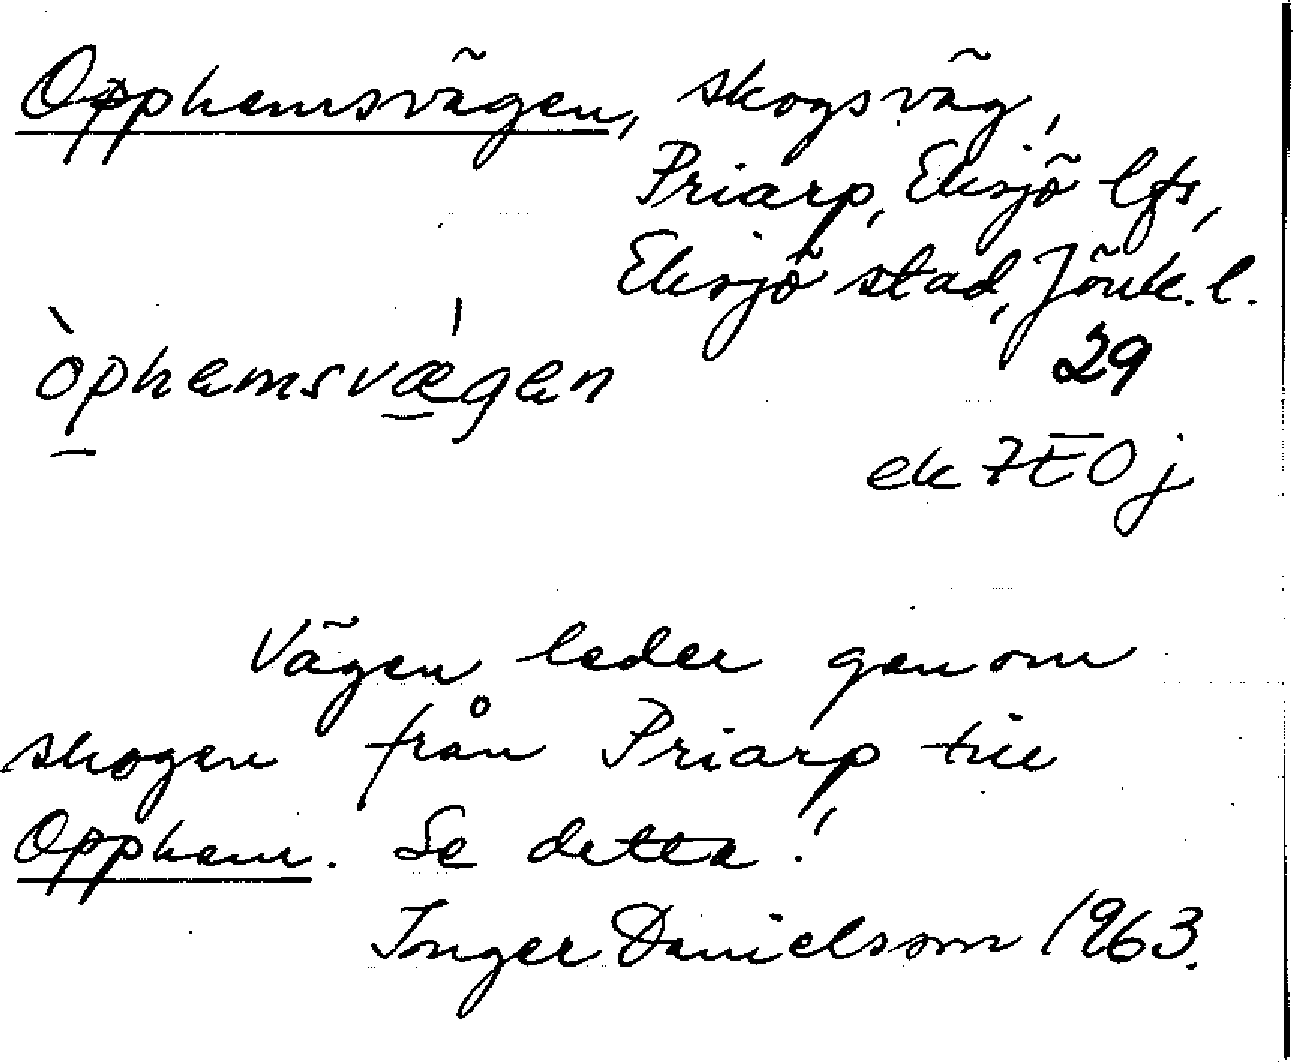 Opphemsvägen, skogsväg,
Priarp, Eksjö lfs,
Eksjö stad, Jönk. l.
òphemsvǽgen
29
ek 7E0j
Vägen leder genom
skogen från Priarp till
Opphem. Se detta!
Inger Danielsson 1963.